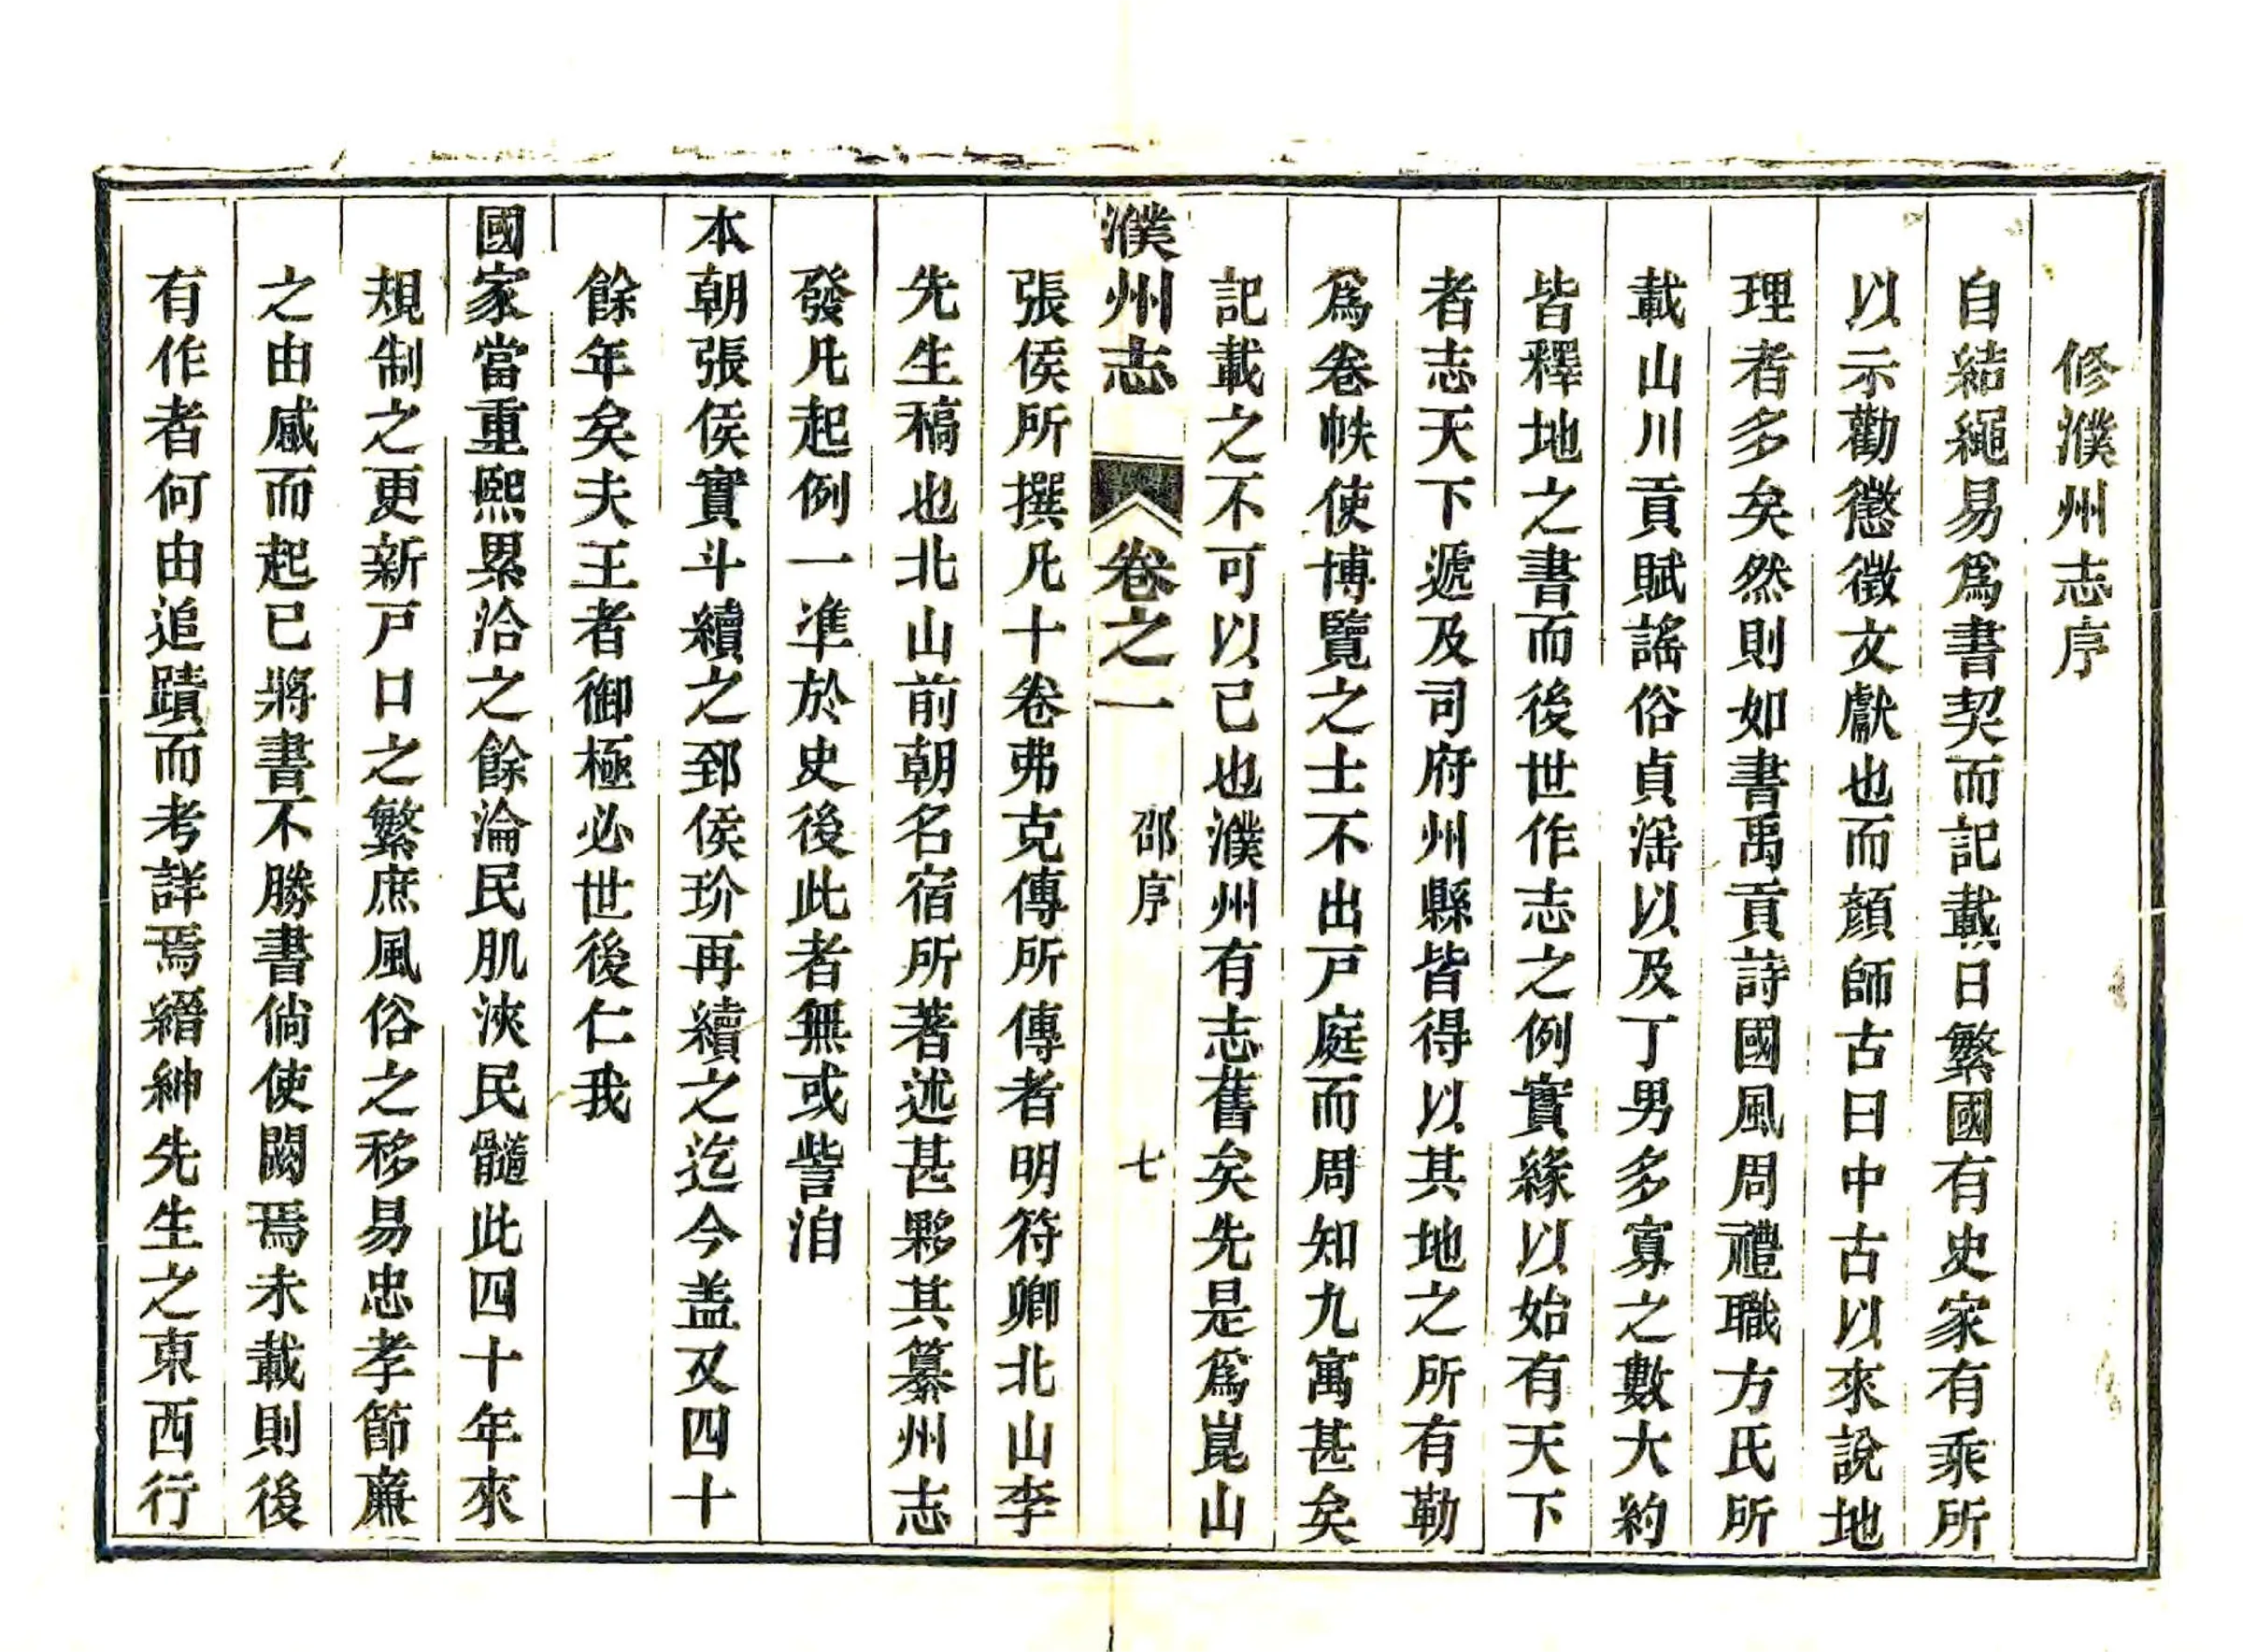 修濮州志序
自結繩易爲書契而記載日繁國有史家有乘所
以示勸懲徵文獻也而顔師古曰中古以來說地
理者多矣然則如書禹貢詩國風周禮職方氏所
載山川貢賦謠俗貞滛以及丁男多寡之數大約
皆釋地之書而後世作志之例實緣以始有天下
者志天下遞及司府州縣皆得以其地之所有勒
爲卷帙使博覽之士不出戸庭而周知九寓甚矣
記載之不可以已也濮州有志舊矣先是爲崑山
濮州志 卷之一 邵序 七
張侯所撰凡十卷弗克傳所傳者明符卿北山李
先生稿也北山前朝名宿所著述甚夥其纂州志
發凡起例一準於史後此者無或訾洎
本朝張侯實斗續之郅侯玠再續之迄今盖又四十
餘年矣夫王者御極必世後仁我
國家當重熙累洽之餘淪民肌浹民髓此四十年來
規制之更新戸口之繁庶風俗之移易忠孝節廉
之由感而起已將書不勝書倘使闕焉未載則後
有作者何由追蹟而考詳焉縉紳先生之東西行